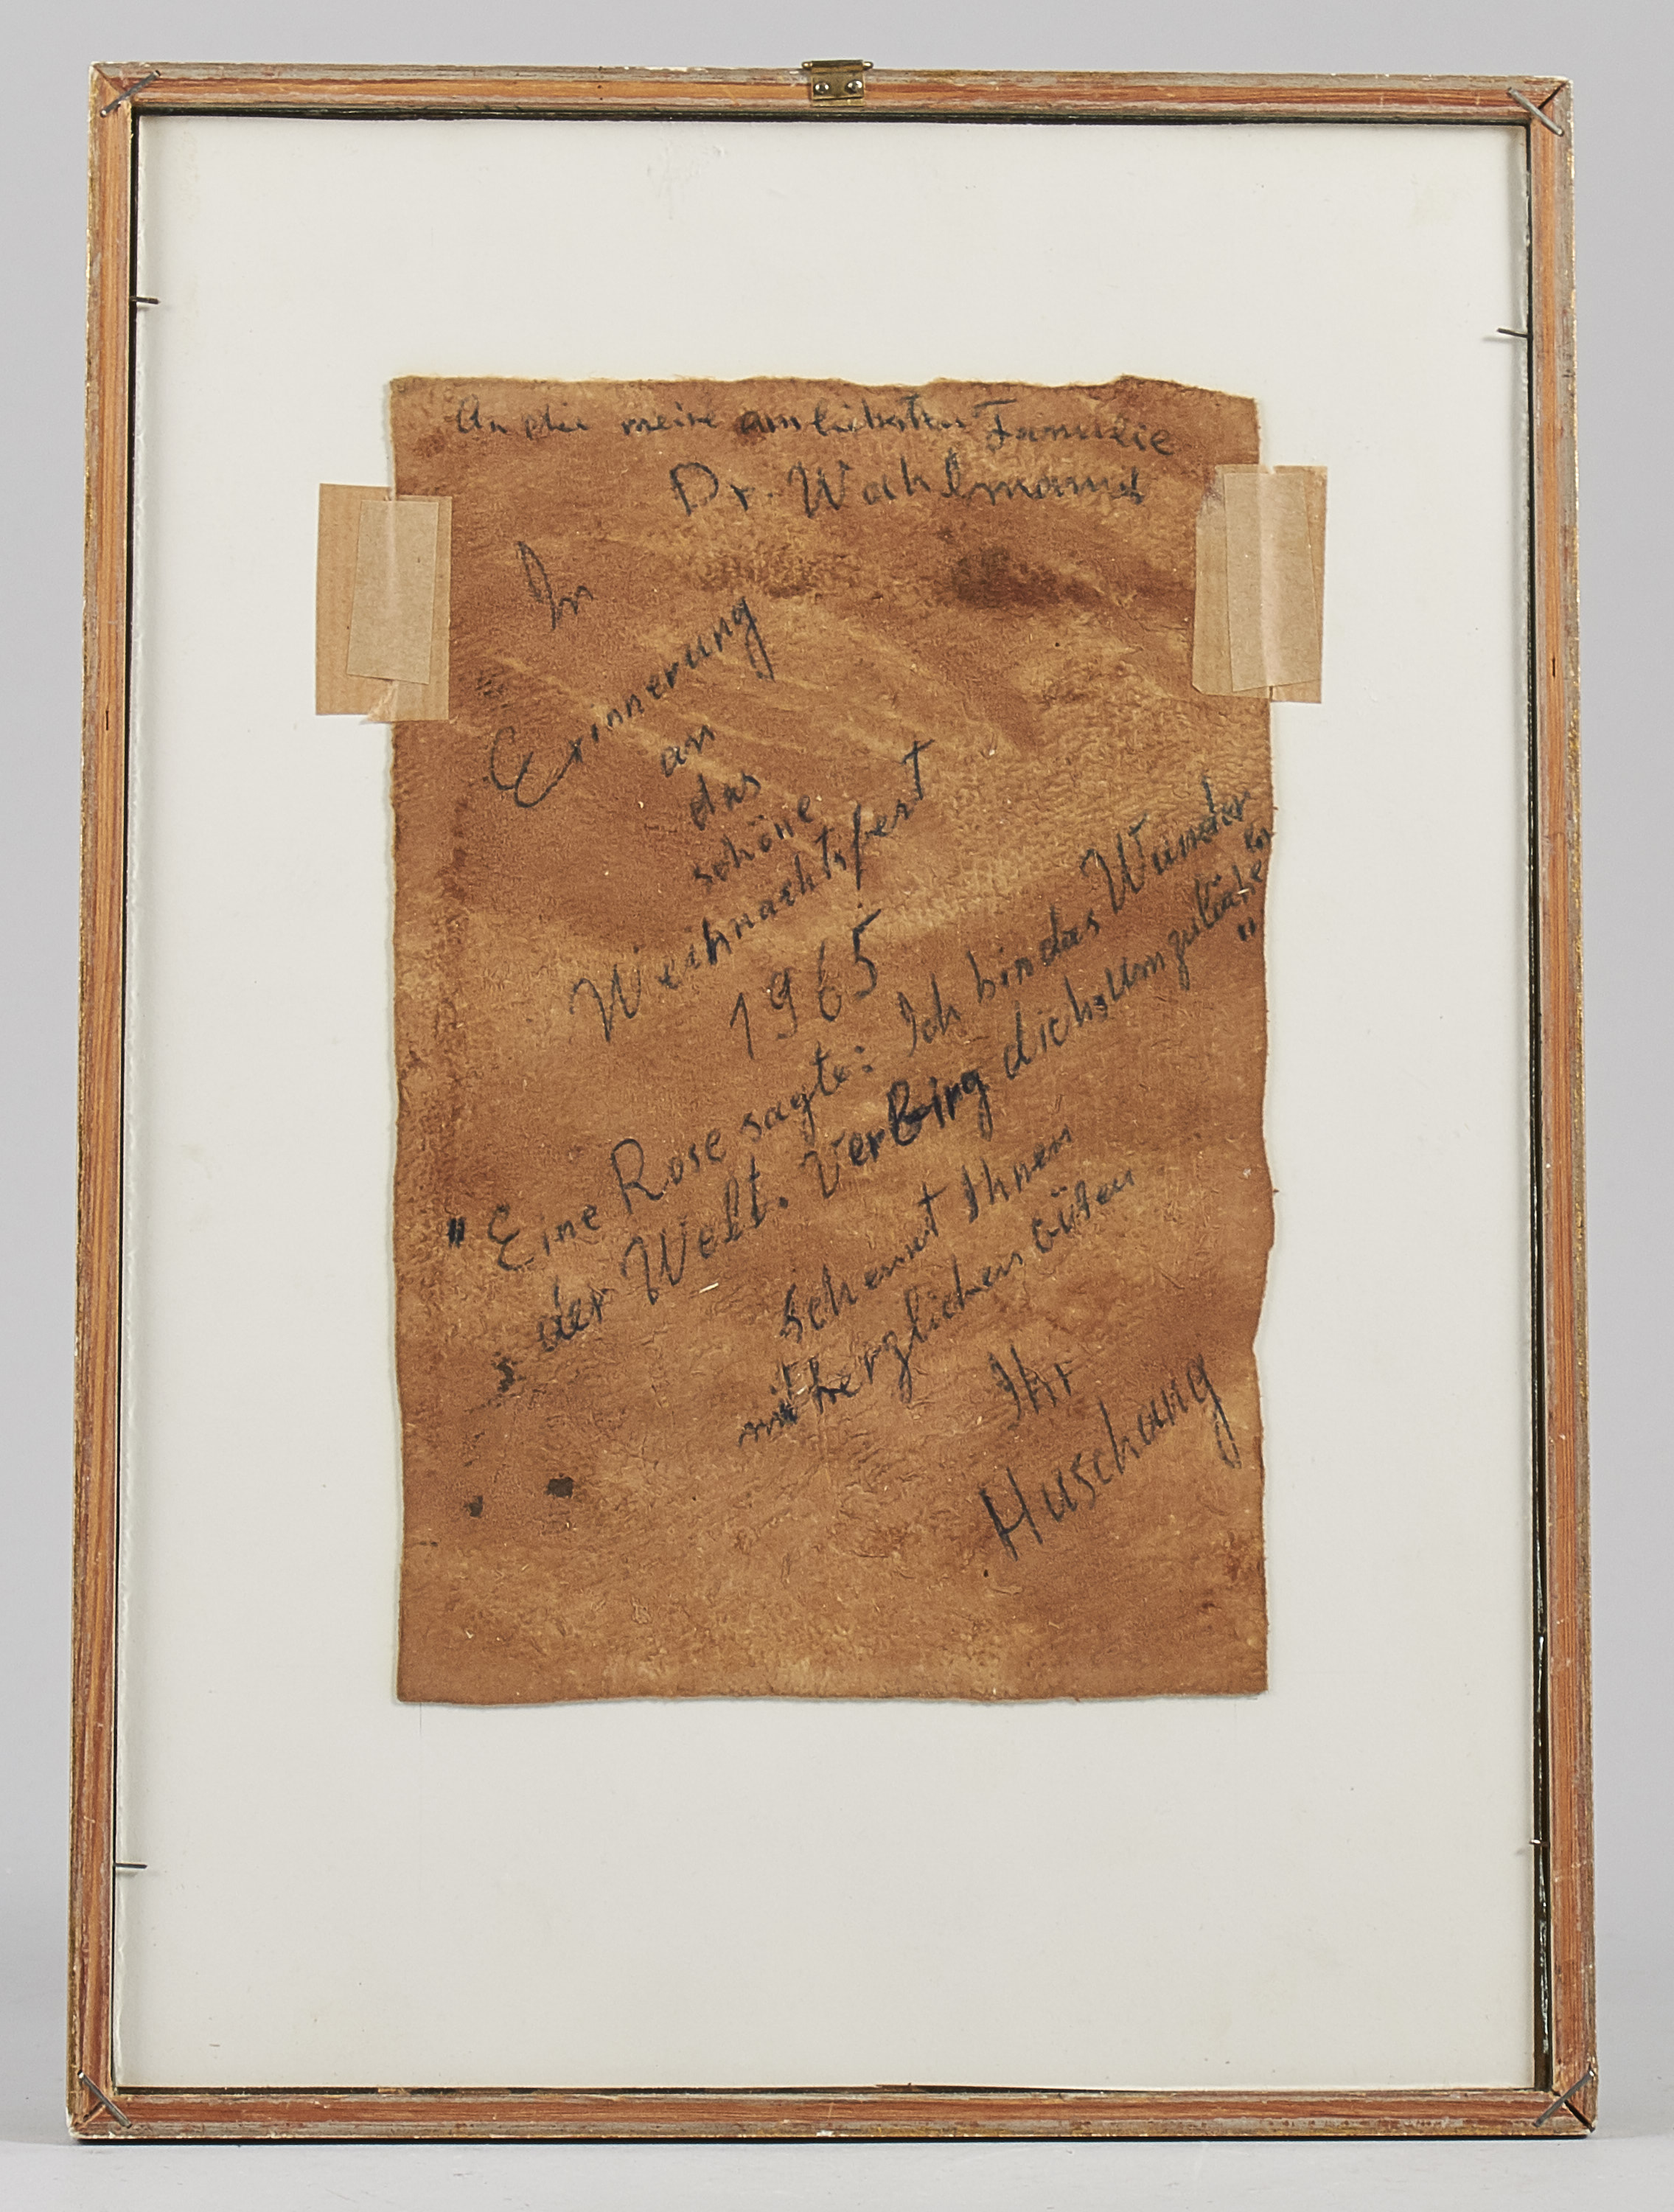 An die meine am liebsten Familie
Dr. Wahlmanns
In
Erinnerung
an
das
schöne
Weihnachtsfest
1965
"Eine Rose sagte: Ich bin das Wunder
der Welt. Verbirg dich
"
schennt Ihnen
mit herzlichen
Ihr
Huschang